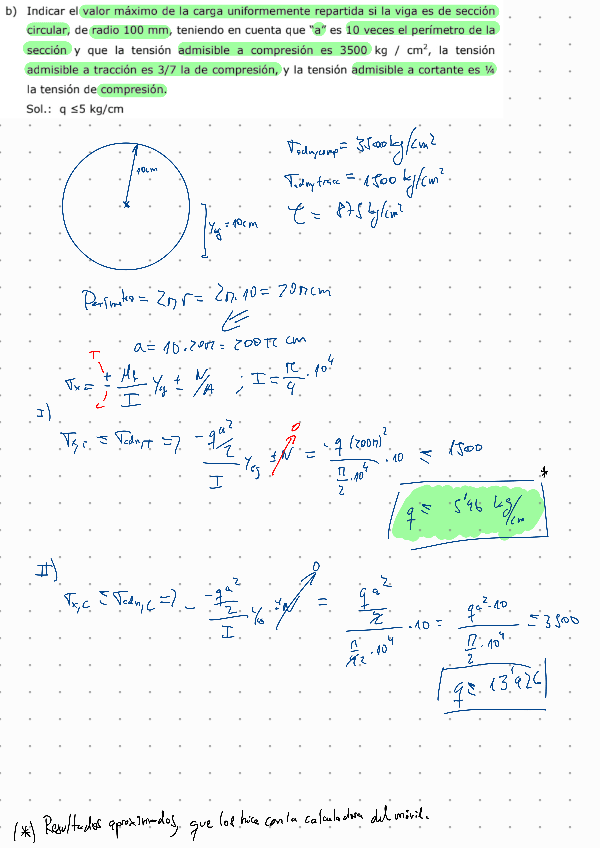 b) Indicar el valor máximo de la carga uniformemente repartida si la viga es de sección
circular, de radio 100 mm, teniendo en cuenta que "a" es 10 veces el perímetro de la
sección y que la tensión admisible a compresión es 3500 kg / cm², la tensión
admisible a tracción es 3/7 la de compresión, y la tensión admisible a cortante es ¼
la tensión de compresión.
Sol.: q ≤5 kg/cm
10cm
y_G = 10cm
σadm,comp = 3500 kg/cm²
σadm,tracc = 1500 kg/cm²
τ = 875 kg/cm²
Perímetro = 2πr = 2π·10 = 20π cm
a = 10·20π = 200π cm
T
C
σx = ± Mf/I y_G ± N/A ; I = π/4 · 10⁴
I)
σx,c ≤ σadm,T => (-qa²/2)/I y_G ± N 0 = q(200π)²/(π/2 · 10⁴) · 10 ≤ 1500
*
q ≤ 5'96 kg/cm
II)
σx,c ≤ σadm,C => - (-qa²/2)/I y_G ± N 0 = (qa²/2)/(π/4 · 10⁴) · 10 = qa²·10/(π/2 · 10⁴) ≤ 3500
q ≤ 13'926
(*) Resultados aproximados, que los hice con la calculadora del móvil.